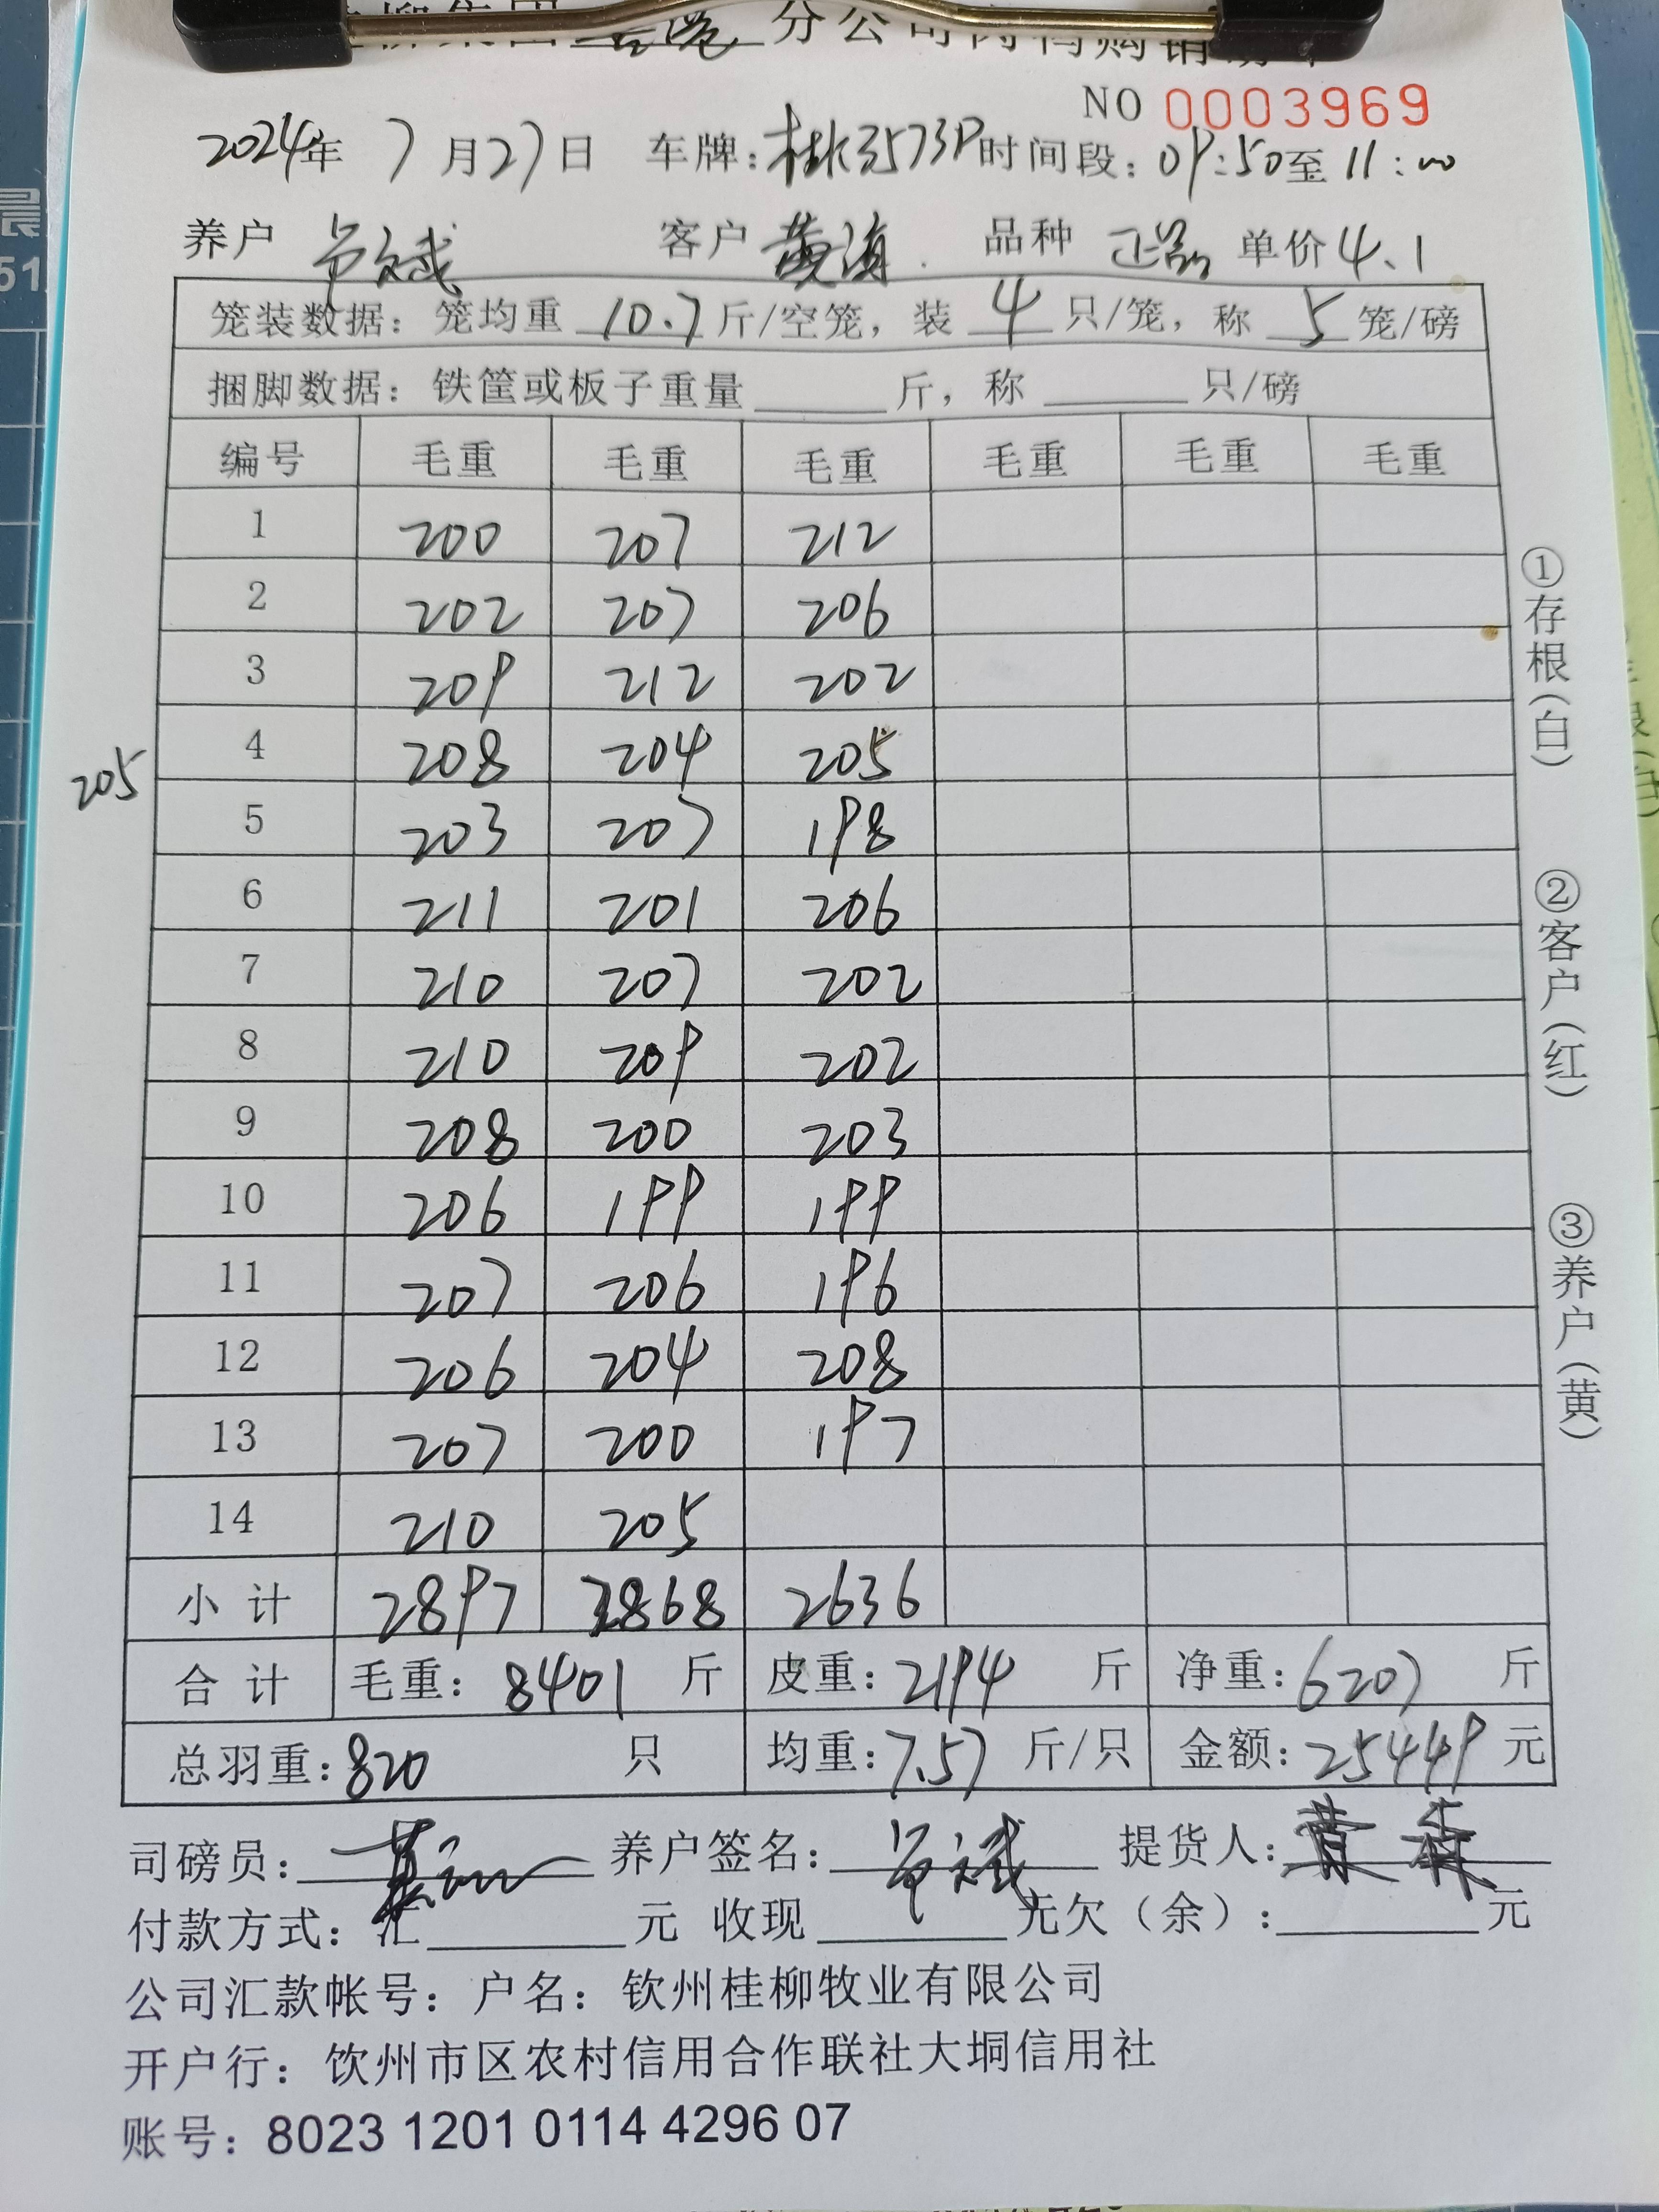 分公司肉鸭购销
NO 0003969
2024年 7月27日 车牌:桂K3573P 时间段:09:50至11:00
养户 客户 黄海 品种 正品 单价4.1
笼装数据:笼均重 10.7 斤/空笼,装 4 只/笼,称 5 笼/磅
捆脚数据:铁筐或板子重量 斤,称 只/磅
编号 毛重 毛重 毛重 毛重 毛重 毛重
1 200 207 212
2 202 207 206
3 209 212 202
4 208 204 205
205
5 203 207 198
6 211 201 206
7 210 207 202
8 210 209 202
9 208 200 203
10 206 199 199
11 207 206 196
12 206 204 208
13 207 200 197
14 210 205
小计 2897 2868 2636
合计 毛重:8401 斤 皮重:2194 斤 净重:6207 斤
总羽重:820 只 均重:7.57 斤/只 金额:25449 元
司磅员: 养户签名: 提货人:
付款方式:汇 元 收现 元欠(余): 元
公司汇款帐号:户名:钦州桂柳牧业有限公司
开户行:饮州市区农村信用合作联社大垌信用社
账号:8023 1201 0114 4296 07
①存根(白)
②客户(红)
③养户(黄)